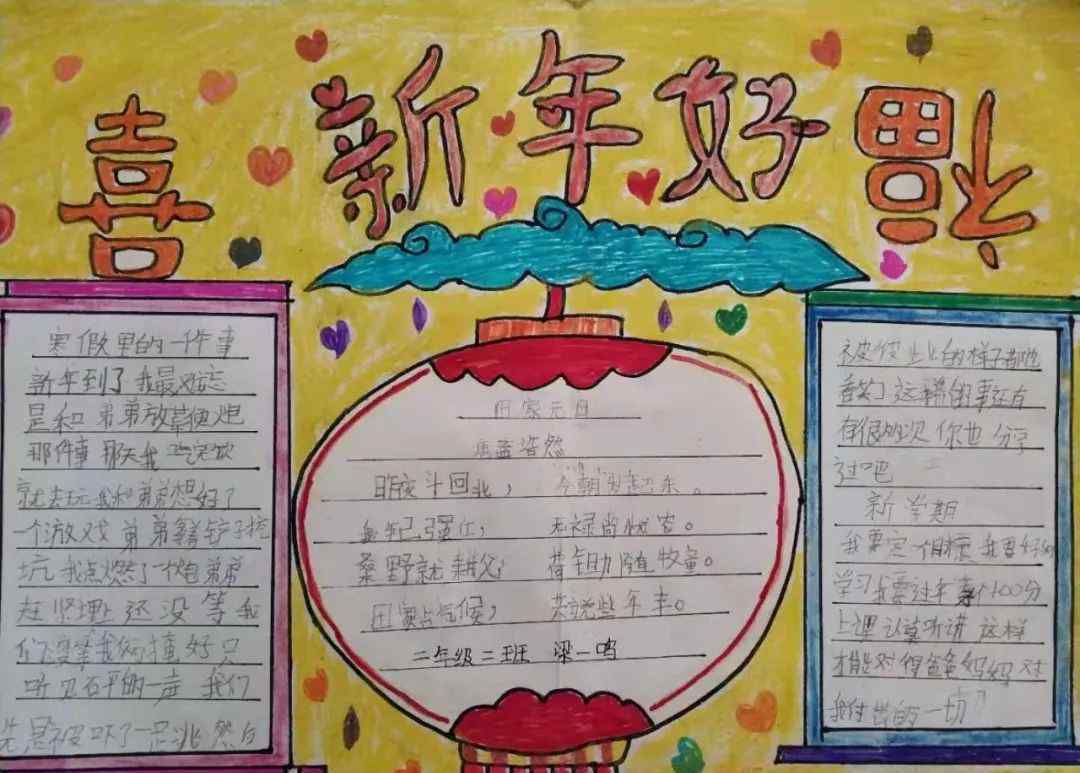 喜 新年好 福
寒假里的一件事
新年到了 我最难忘
是和弟弟放草便炮
那件事 那天我吃完饭
就去玩 我和弟弟想好了
一个游戏 弟弟拿铲子挖
坑 我点燃了火炮弟弟
赶紧埋上 还没等我
们 掩好 只
听 石平的一声 我们
先是被吓了一跳 然后
田家元日
孟浩然
昨夜斗回北, 今朝岁起东。
我年已强仕, 无禄尚忧农。
桑野就耕父, 荷锄随牧童。
田家占气候, 共说些年丰。
二年级二班 梁一鸣
被 的样子都
笑了 这样的事还有
有很多次 你也分享
过吧
新学期
我要定一个目标 我要好好
学习 我要过年 100分
上课认真听讲 这样
才能对得爸爸妈妈对
我付出的一切